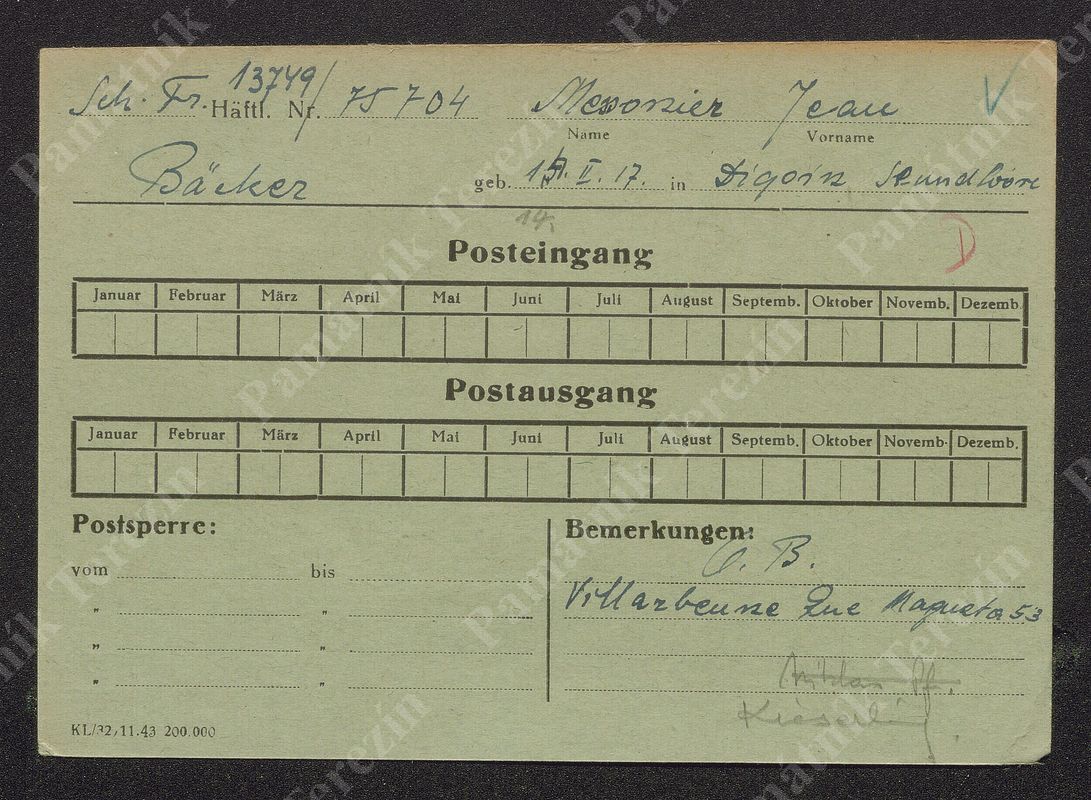 Sch. Fr. Häftl. Nr. 13749/ 75704 Messonier Jean
Name Vorname
Bäcker geb. 14. II. 17. in Digoin
14.
D
Posteingang
Januar Februar März April Mai Juni Juli August Septemb. Oktober Novemb. Dezemb.
Postausgang
Januar Februar März April Mai Juni Juli August Septemb. Oktober Novemb. Dezemb.
Postsperre: Bemerkungen:
O. B.
vom bis
Villarbeunne Rue Magneta 53
" "
" "
" "
KL/32/11.43 200.000
Památník Terezín